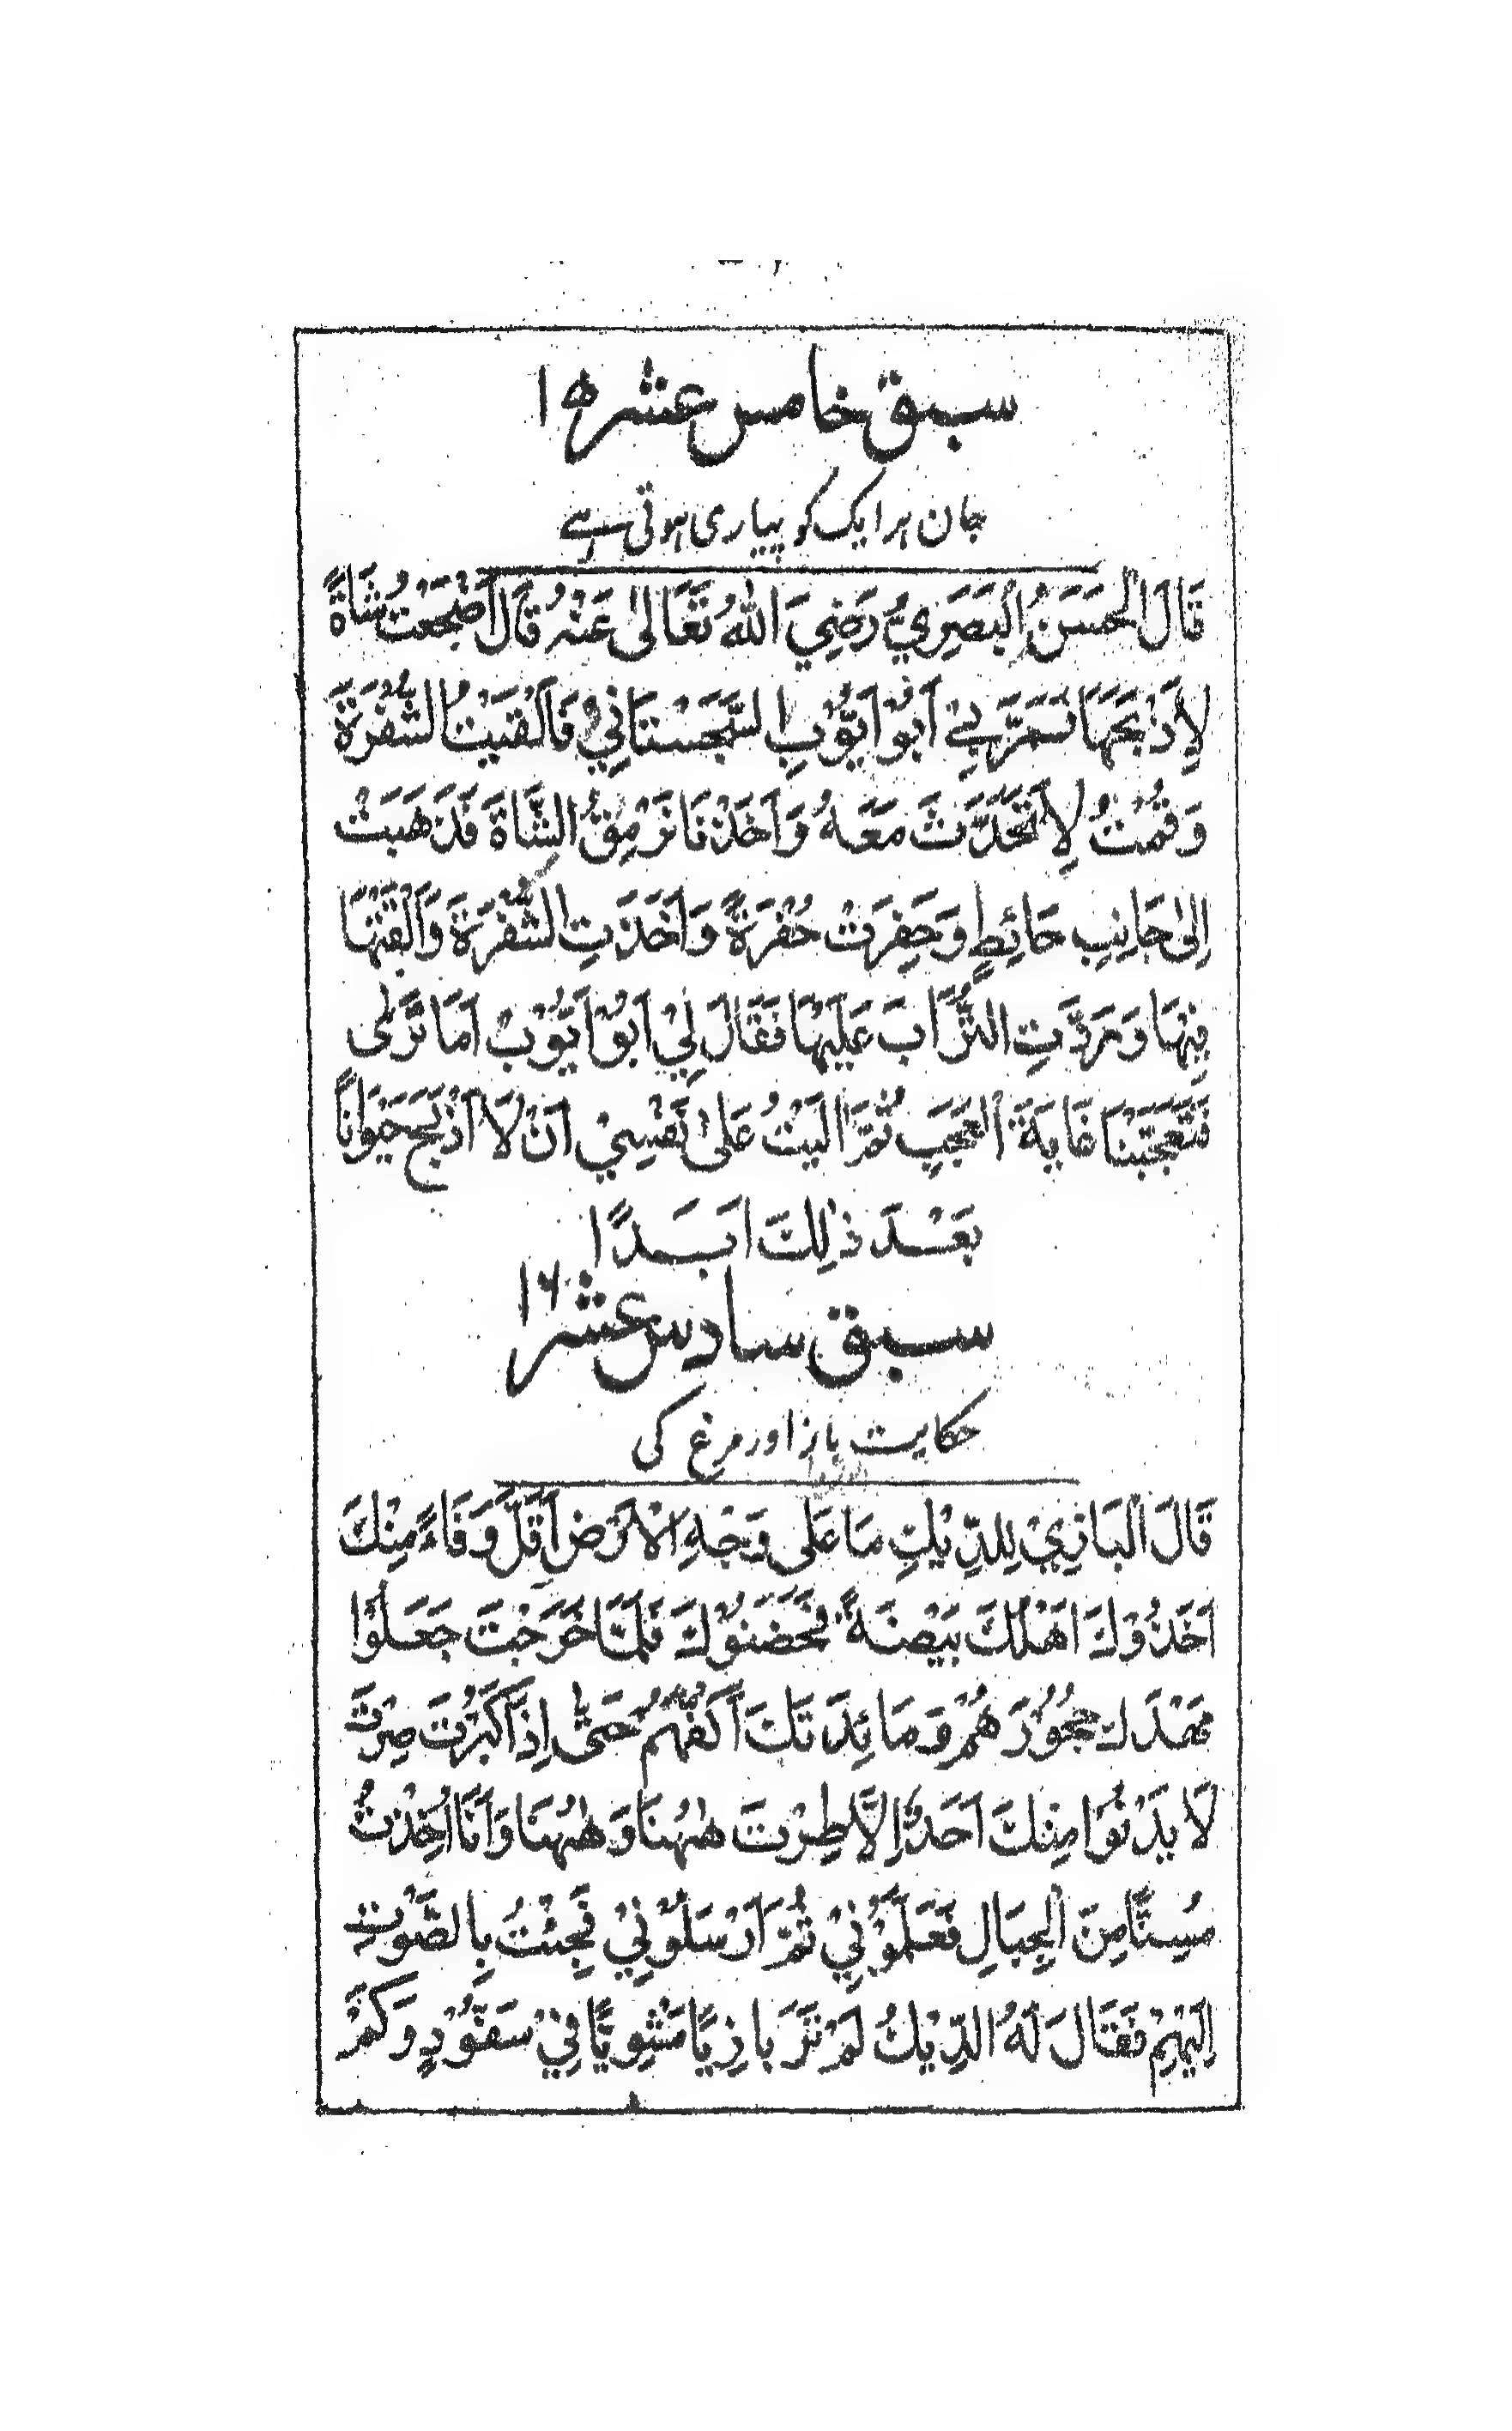 سبق خامس عشر ۱۵
جان ہر ایک کو پیاری ہوتی ہے
قَالَ الْحَسَنُ الْبَصَرِيُّ رَضِيَ اللّٰهُ تَعَالٰى عَنْهُ قَالَ اَضْجَعْتُ شَاةً
لِاَذْبَحَهَا فَمَرَّ بِيْ اَبُوْ اَيُّوْبِ السَّجَسْتَانِيُّ فَاَلْقَيْتُ الشَّفْرَةَ
وَقُمْتُ لِاَتَحَدَّثَ مَعَهُ وَاَخَذْنَا نَرْمِقُ الشَّاةَ فَذَهَبَتْ
اِلٰى جَانِبِ حَائِطٍ وَحَفِرَتْ حُفْرَةً وَاَخَذَتِ الشَّفْرَةَ وَاَلْقَتْهَا
فِيْهَا وَرَدَّتِ التُّرَابَ عَلَيْهَا فَقَالَ لِيْ اَبُوْ اَيُّوْبْ اَمَا تَرٰى
فَتَعَجَّبْنَا غَايَةَ الْعَجَبِ ثُمَّ اٰلَيْتُ عَلٰى نَفْسِيْ اَنْ لَا اَذْبَحَ حَيَوَانًا
بَعْدَ ذٰلِكَ اَبَدًا
سبق سادس عشر ۱۶
حکایت باز اور مرغ کی
قَالَ الْبَازِيْ لِلدِّيْكِ مَا عَلٰى وَجْهِ الْاَرْضِ اَقَلَّ وَفَاءً مِنْكَ
اَخَذُوْكَ اَهْلُكَ بَيْضَةً فَحَضَنُوْكَ فَلَمَّا خَرَجْتَ جَعَلُوْا
مَهْدَكَ حُجُوْرَهُمْ وَمَائِدَتَكَ اَكُفَّهُمْ حَتّٰى اِذَا كَبُرْتَ صِرْتَ
لَا يَدْنُوْا مِنْكَ اَحَدٌ اِلَّا طِرْتَ هٰهُنَا وَهٰهُنَا وَاَنَا اُخِذْتُ
مُسِنًّا مِنَ الْجِبَالِ فَعَلَّمُوْنِيْ ثُمَّ اَرْسَلُوْنِيْ فَجِئْتُ بِالصَّوْتِ
اِلَيْهِمْ فَقَالَ لَهُ الدِّيْكُ لَمْ تَرَ بَازِيًا مَشْوِيًّا فِيْ سَفُّوْدٍ وَكَمْ